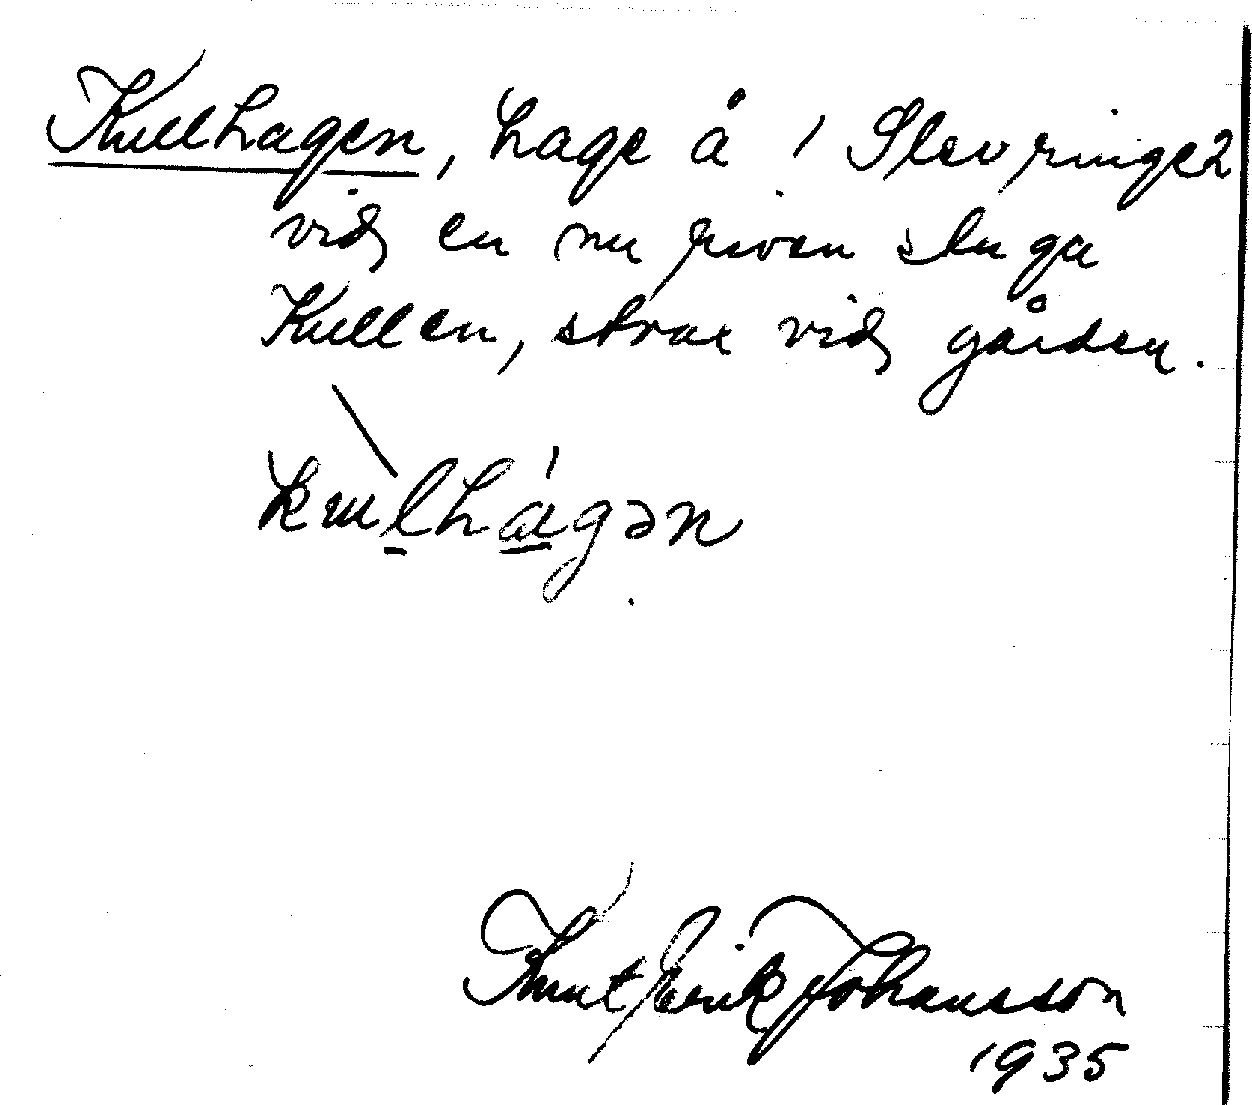 Kullhagen, hage å 1 Slevringe 2
vid en nu riven stuga
Kullen, strax vid gården.
Knut Erik Johansson
1935